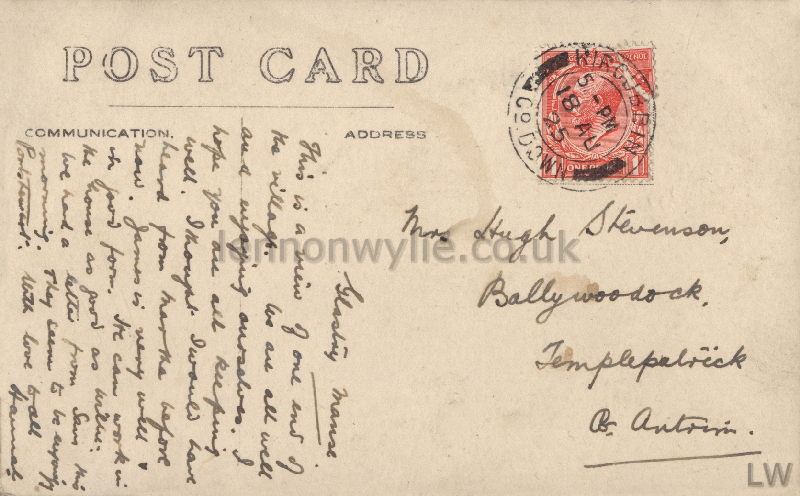 POST CARD
COMMUNICATION.
ADDRESS
KIRCUBBIN
5-PM
18 AU
25
CO. DOWN
ONE PENNY
Glastry Manse.
This is a view of one end of
the village. We are all well
and enjoying ourselves. I
hope you are all keeping
well. I thought I would have
heard from Martha before
now. James is very well &
in good form. He can work in
the house as good as
We had a letter from this
morning. They seem to be enjoying
Portstewart. With love to all
Hannah
Mrs Hugh Stevenson,
Ballywoodock,
Templepatrick
Co. Antrim.
lennonwylie.co.uk
LW